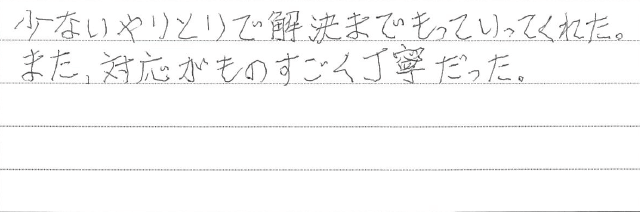 少ないやりとりで解決までもっていってくれた。
また、対応がものすごく丁寧だった。